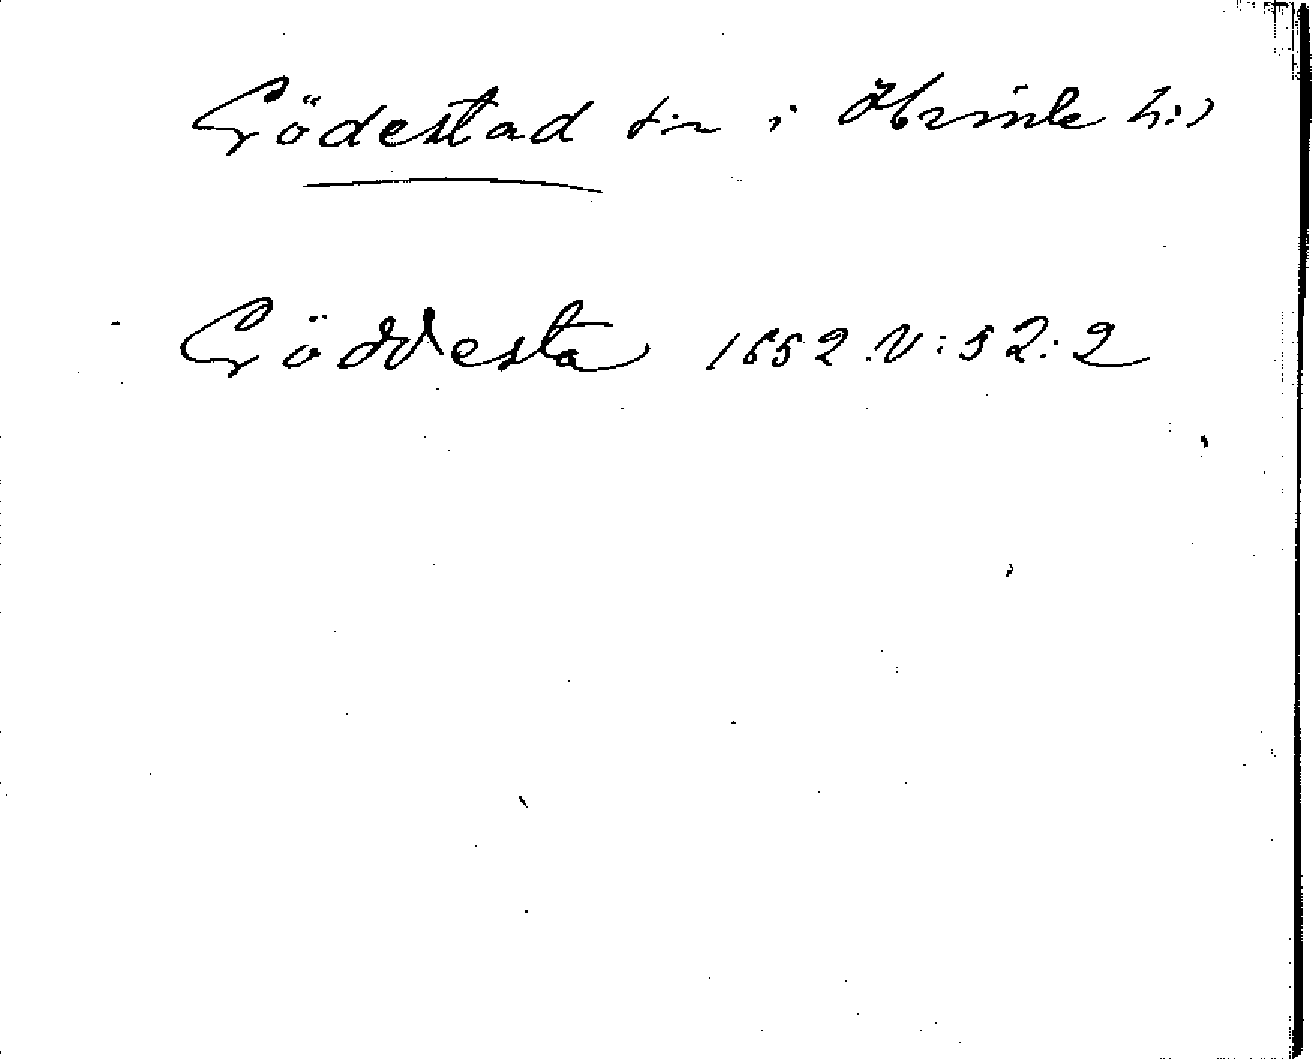 Gödestad sn i Himle hd
Göddesta 1652.V:52:2